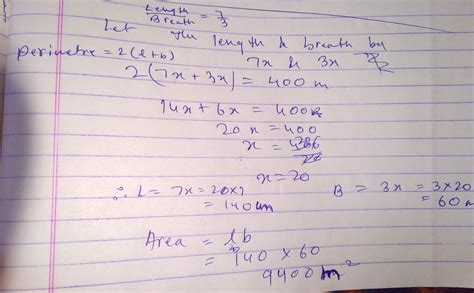 Length / Breath = 7/3
Let the length & breath by
7x & 3x
perimetre = 2(l+b)
2(7x+3x) = 400 m
14x + 6x = 400
20x = 400
x =
x = 20
∴ L = 7x = 20×7
= 140m
B = 3x = 3×20
= 60 m
Area = lb
= 140 × 60
9400 m²